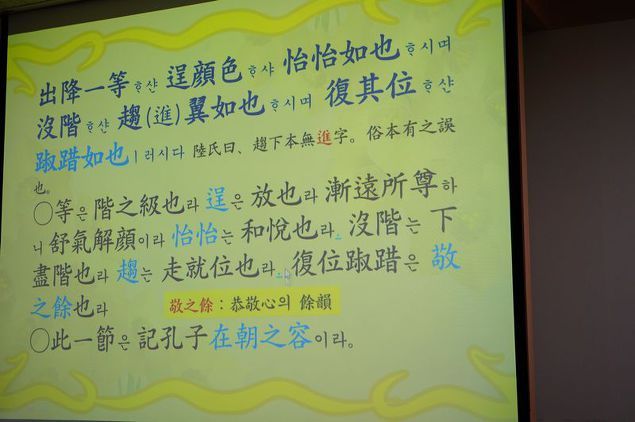 出降一等ᄒᆞ샨 逞顔色ᄒᆞ샤 怡怡如也ᄒᆞ시며
沒階ᄒᆞ샨 趨(進)翼如也ᄒᆞ시며 復其位ᄒᆞ샨
踧踖如也ㅣ러시다 陸氏曰、趨下本無進字。俗本有之誤
也。
○等은 階之級也라 逞은 放也라 漸遠所尊하
니 舒氣解顔이라 怡怡는 和悅也라 沒階는 下
盡階也라 趨는 走就位也라 復位踧踖은 敬
之餘也라
敬之餘：恭敬心의 餘韻
○此一節은 記孔子在朝之容이라。